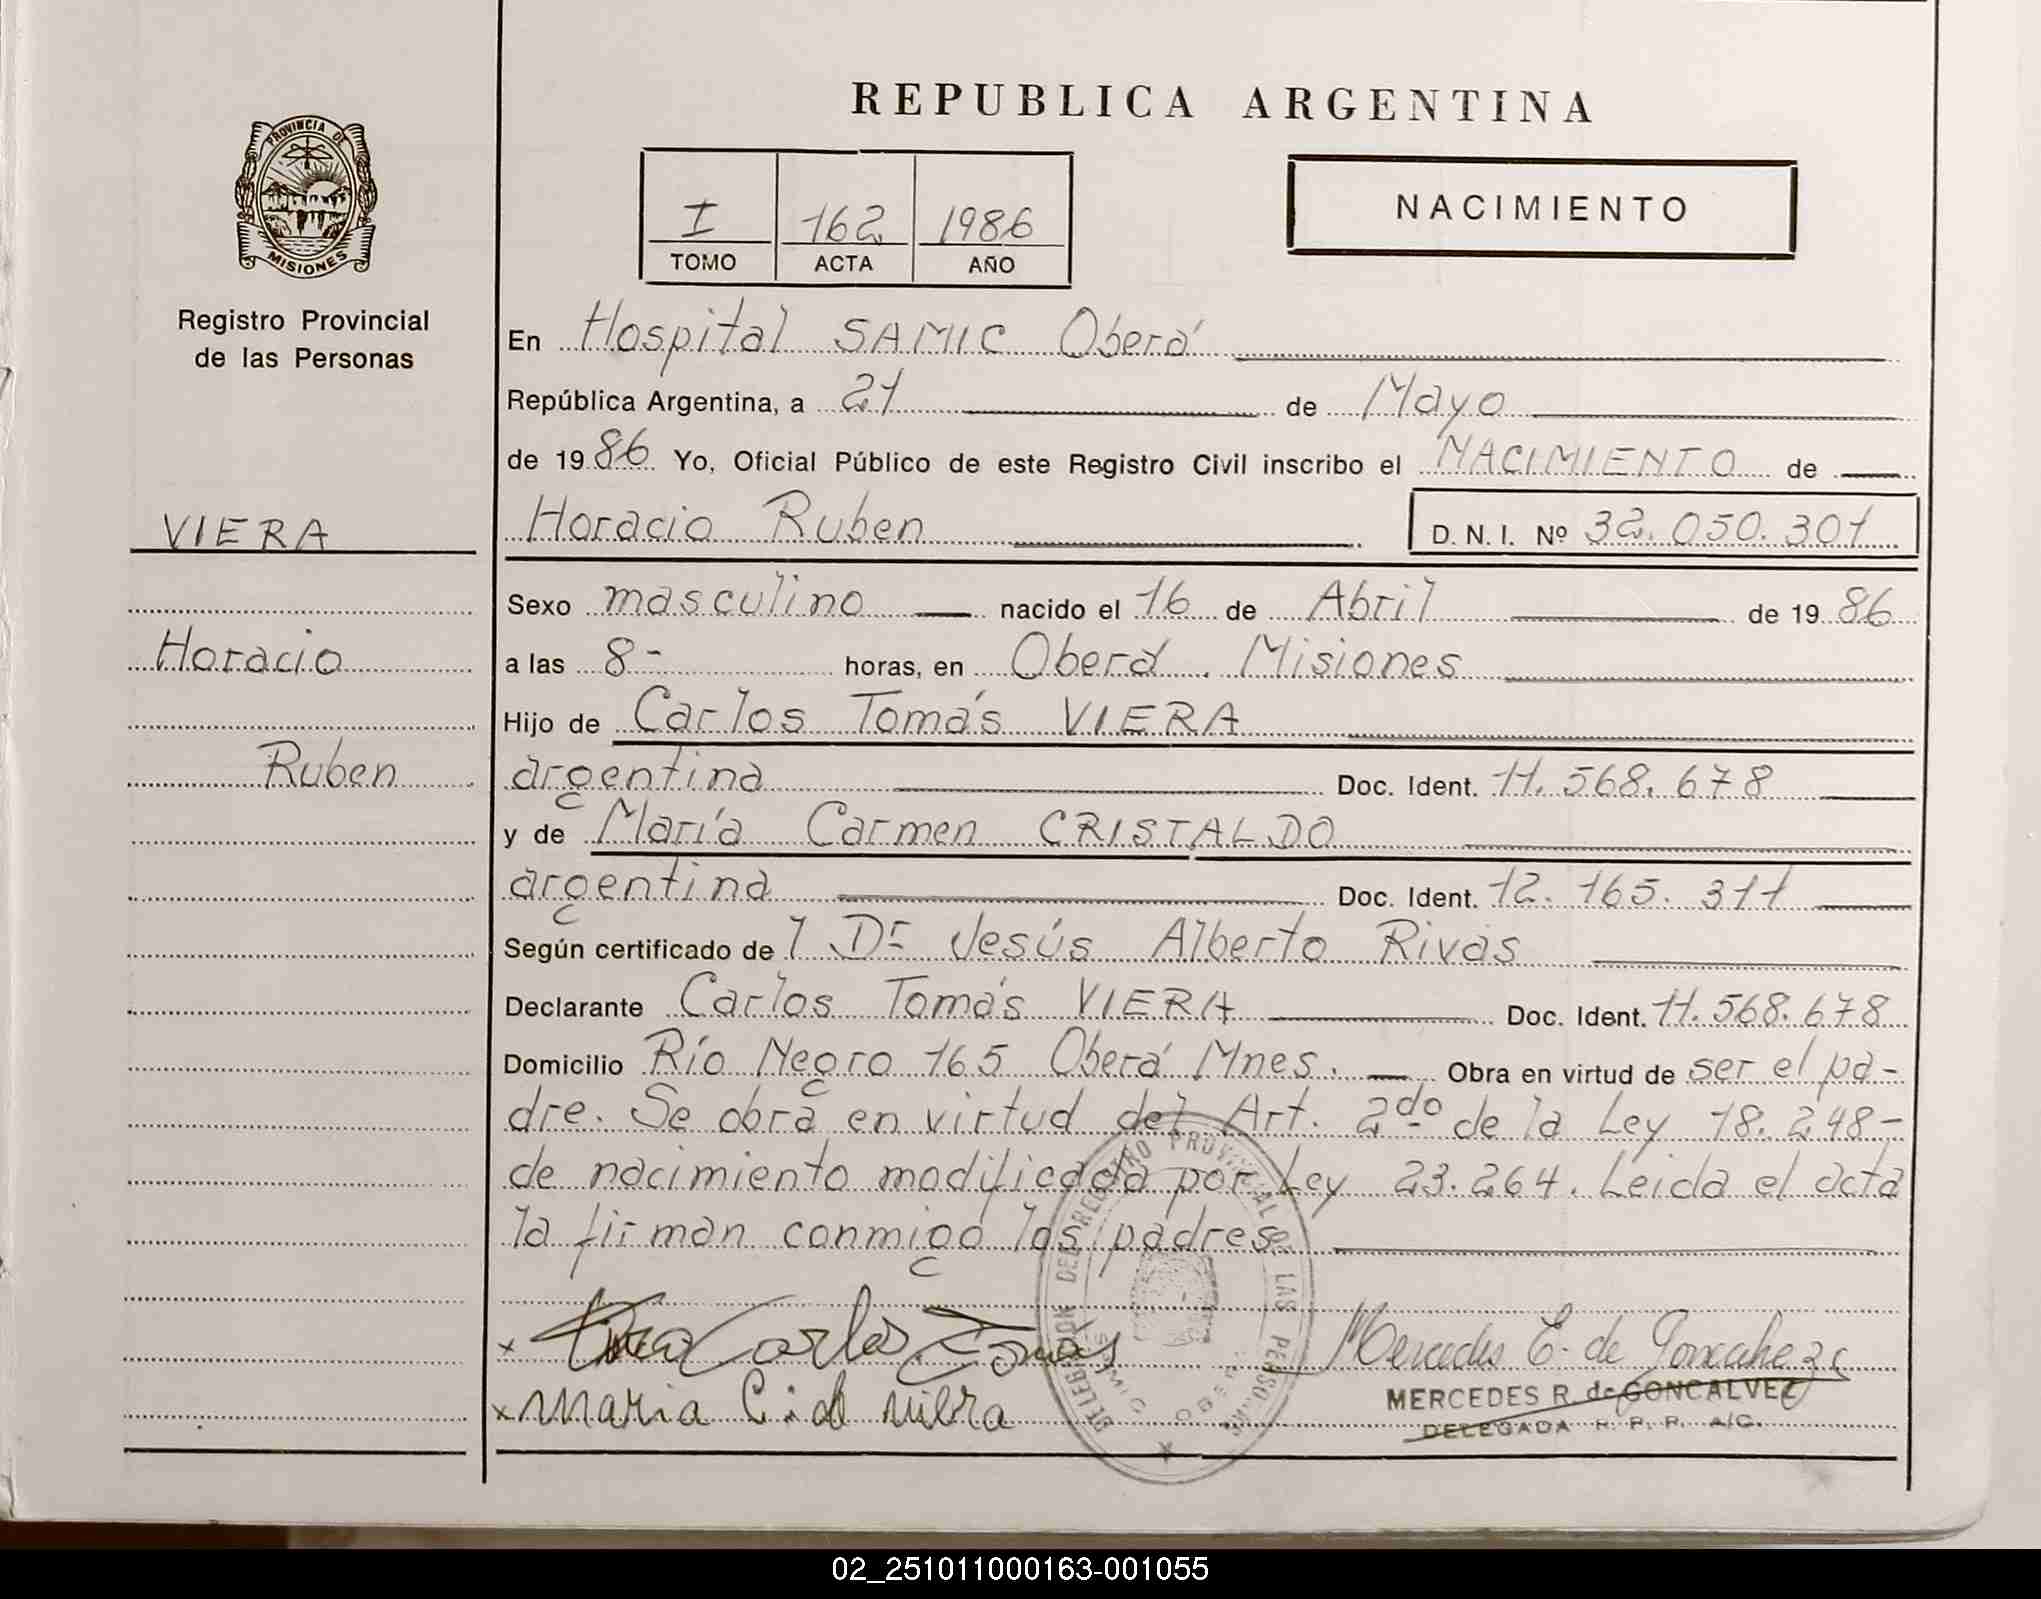 REPUBLICA ARGENTINA
PROVINCIA DE
MISIONES
Registro Provincial
de las Personas
I 162 1986
TOMO ACTA AÑO
NACIMIENTO
En Hospital SAMIC Oberá
República Argentina, a 21 de Mayo
de 1986 Yo, Oficial Público de este Registro Civil inscribo el NACIMIENTO de
VIERA
Horacio Ruben D. N. I. Nº 32.050.301
Sexo masculino nacido el 16 de Abril de 1986
Horacio
a las 8- horas, en Oberá. Misiones
Hijo de Carlos Tomás VIERA
Ruben
argentina Doc. Ident. 11.568.678
y de María Carmen CRISTALDO
argentina Doc. Ident. 12.165.311
Según certificado de l Dr Jesús Alberto Rivas
Declarante Carlos Tomás VIERA Doc. Ident. 11.568.678
Domicilio Río Negro 165 Oberá Mnes. Obra en virtud de ser el pa-
dre. Se obra en virtud del Art. 2do de la Ley 18.248-
de nacimiento modificada por Ley 23.264. Leida el acta
la firman conmigo los padres
x Viera Carlos Tomás
x Maria C. de Viera
DELEGACION DEL REGISTRO PROVINCIAL DE LAS PERSONAS
MERCEDES R. de GONCALVEZ
DELEGADA R. P. P. A/C.
02_251011000163-001055